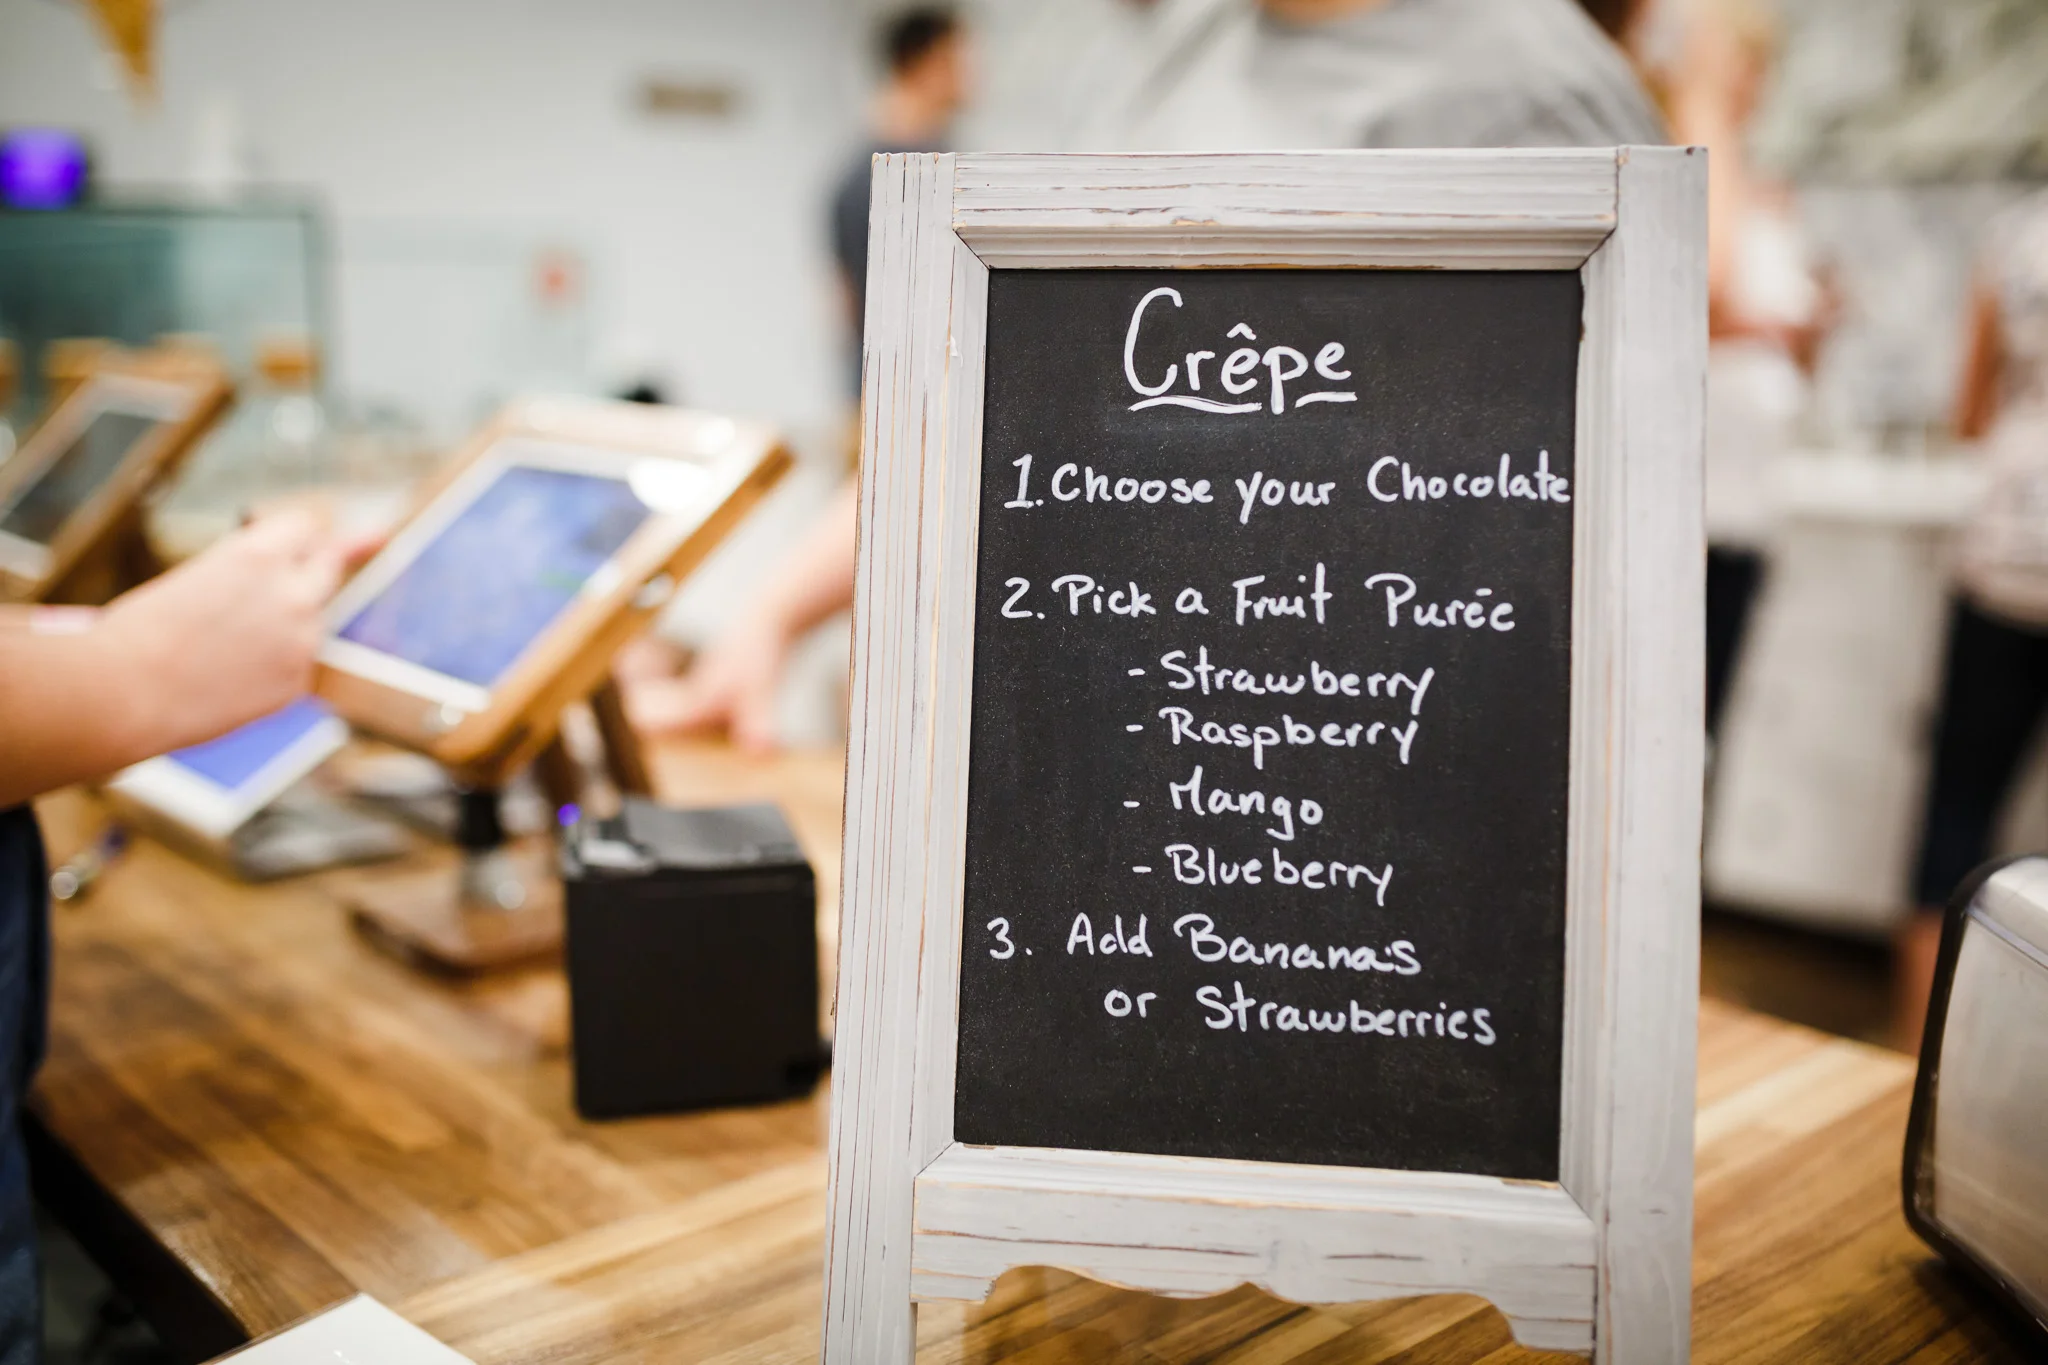 Crêpe
1. Choose your Chocolate
2. Pick a Fruit Purée
- Strawberry
- Raspberry
- Mango
- Blueberry
3. Add Banana's
or Strawberries